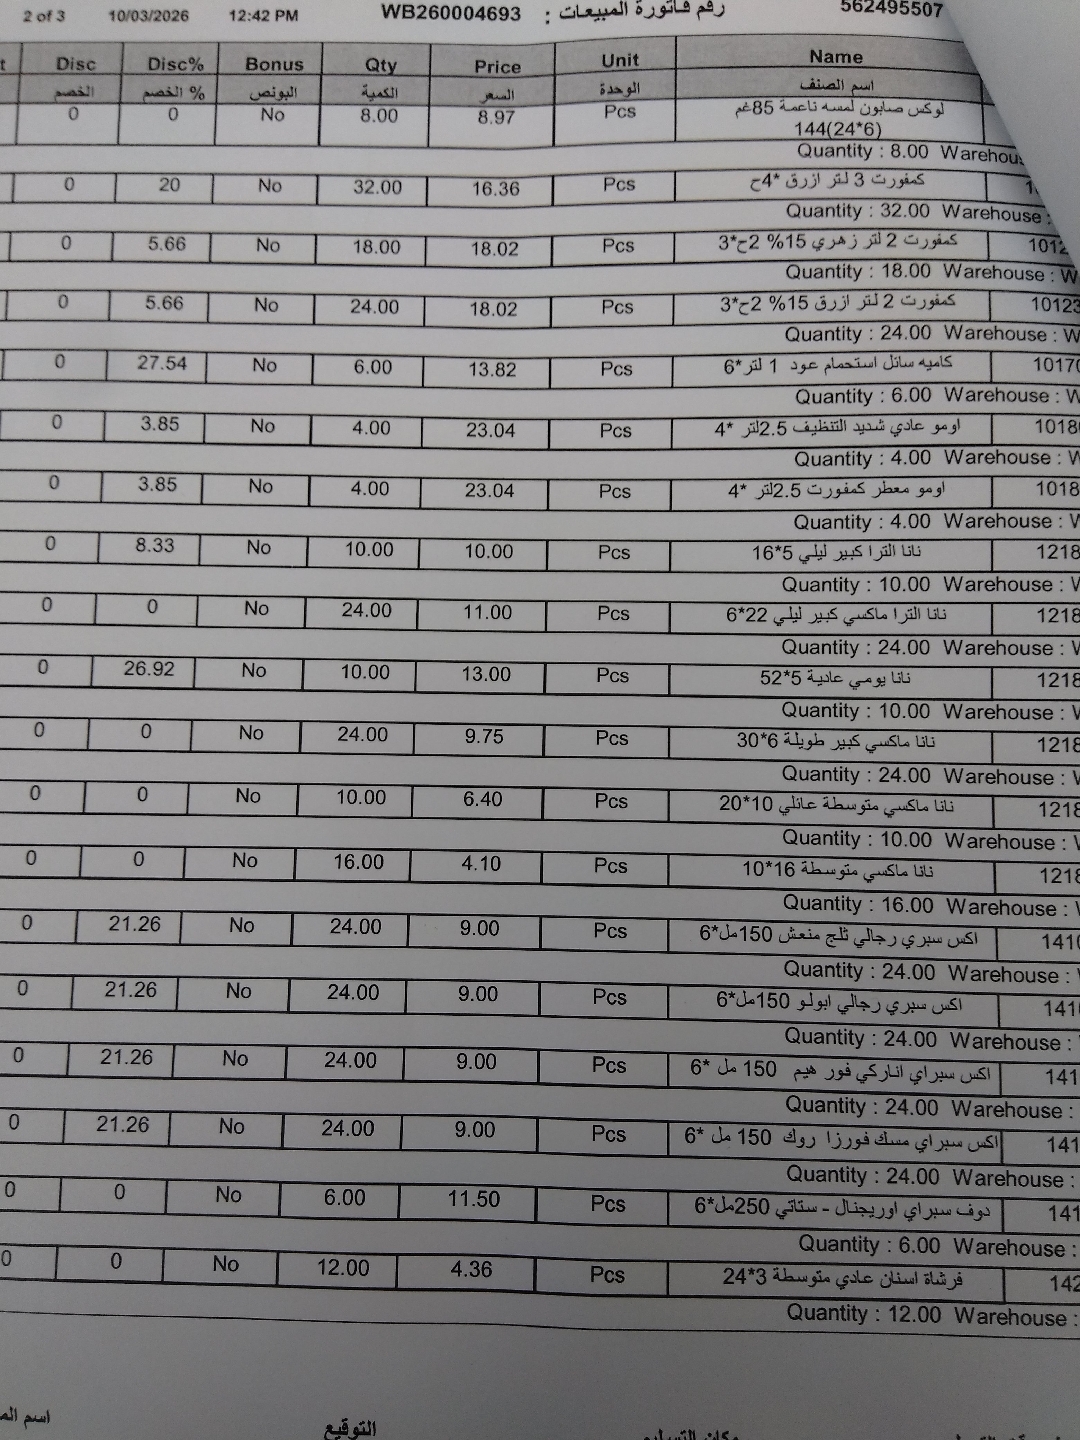 2 of 3 10/03/2026 12:42 PM WB260004693 : رقم فاتورة المبيعات 562495507
Disc Disc% Bonus Qty Price Unit Name
الخصم % الخصم البونص الكمية السعر الوحدة اسم الصنف
0 0 No 8.00 8.97 Pcs لوكس صابون لمسه ناعمة 85غم
144(24*6)
Quantity : 8.00 Warehou
0 20 No 32.00 16.36 Pcs كمفورت 3 لتر ازرق *4ح
Quantity : 32.00 Warehouse :
0 5.66 No 18.00 18.02 Pcs كمفورت 2 لتر زهري 15% 2ح*3 1012
Quantity : 18.00 Warehouse : W
0 5.66 No 24.00 18.02 Pcs كمفورت 2 لتر ازرق 15% 2ح*3 10123
Quantity : 24.00 Warehouse : W
0 27.54 No 6.00 13.82 Pcs كاميه سائل استحمام عود 1 لتر*6 10170
Quantity : 6.00 Warehouse : W
0 3.85 No 4.00 23.04 Pcs اومو عادي شديد التنظيف 2.5لتر *4 1018
Quantity : 4.00 Warehouse : W
0 3.85 No 4.00 23.04 Pcs اومو معطر كمفورت 2.5لتر *4 1018
Quantity : 4.00 Warehouse : W
0 8.33 No 10.00 10.00 Pcs نانا الترا كبير ليلي 5*16 1218
Quantity : 10.00 Warehouse : W
0 0 No 24.00 11.00 Pcs نانا الترا ماكسي كبير ليلي 22*6 1218
Quantity : 24.00 Warehouse : W
0 26.92 No 10.00 13.00 Pcs نانا يومي عادية 5*52 1218
Quantity : 10.00 Warehouse : W
0 0 No 24.00 9.75 Pcs نانا ماكسي كبير طويلة 6*30 1218
Quantity : 24.00 Warehouse : W
0 0 No 10.00 6.40 Pcs نانا ماكسي متوسطة عائلي 10*20 1218
Quantity : 10.00 Warehouse : W
0 0 No 16.00 4.10 Pcs نانا ماكسي متوسطة 16*10 1218
Quantity : 16.00 Warehouse :
0 21.26 No 24.00 9.00 Pcs اكس سبري رجالي ثلج منعش 150مل*6 1410
Quantity : 24.00 Warehouse :
0 21.26 No 24.00 9.00 Pcs اكس سبري رجالي ابولو 150مل*6 141
Quantity : 24.00 Warehouse :
0 21.26 No 24.00 9.00 Pcs اكس سبراي اناركي فور هيم 150 مل *6 141
Quantity : 24.00 Warehouse :
0 21.26 No 24.00 9.00 Pcs اكس سبراي مسك فورزا روك 150 مل *6 141
Quantity : 24.00 Warehouse :
0 0 No 6.00 11.50 Pcs دوف سبراي اوريجنال - ستاتي 250مل*6 141
Quantity : 6.00 Warehouse :
0 0 No 12.00 4.36 Pcs فرشاة اسنان عادي متوسطة 3*24 142
Quantity : 12.00 Warehouse :
اسم التوقيع مكان التسليم